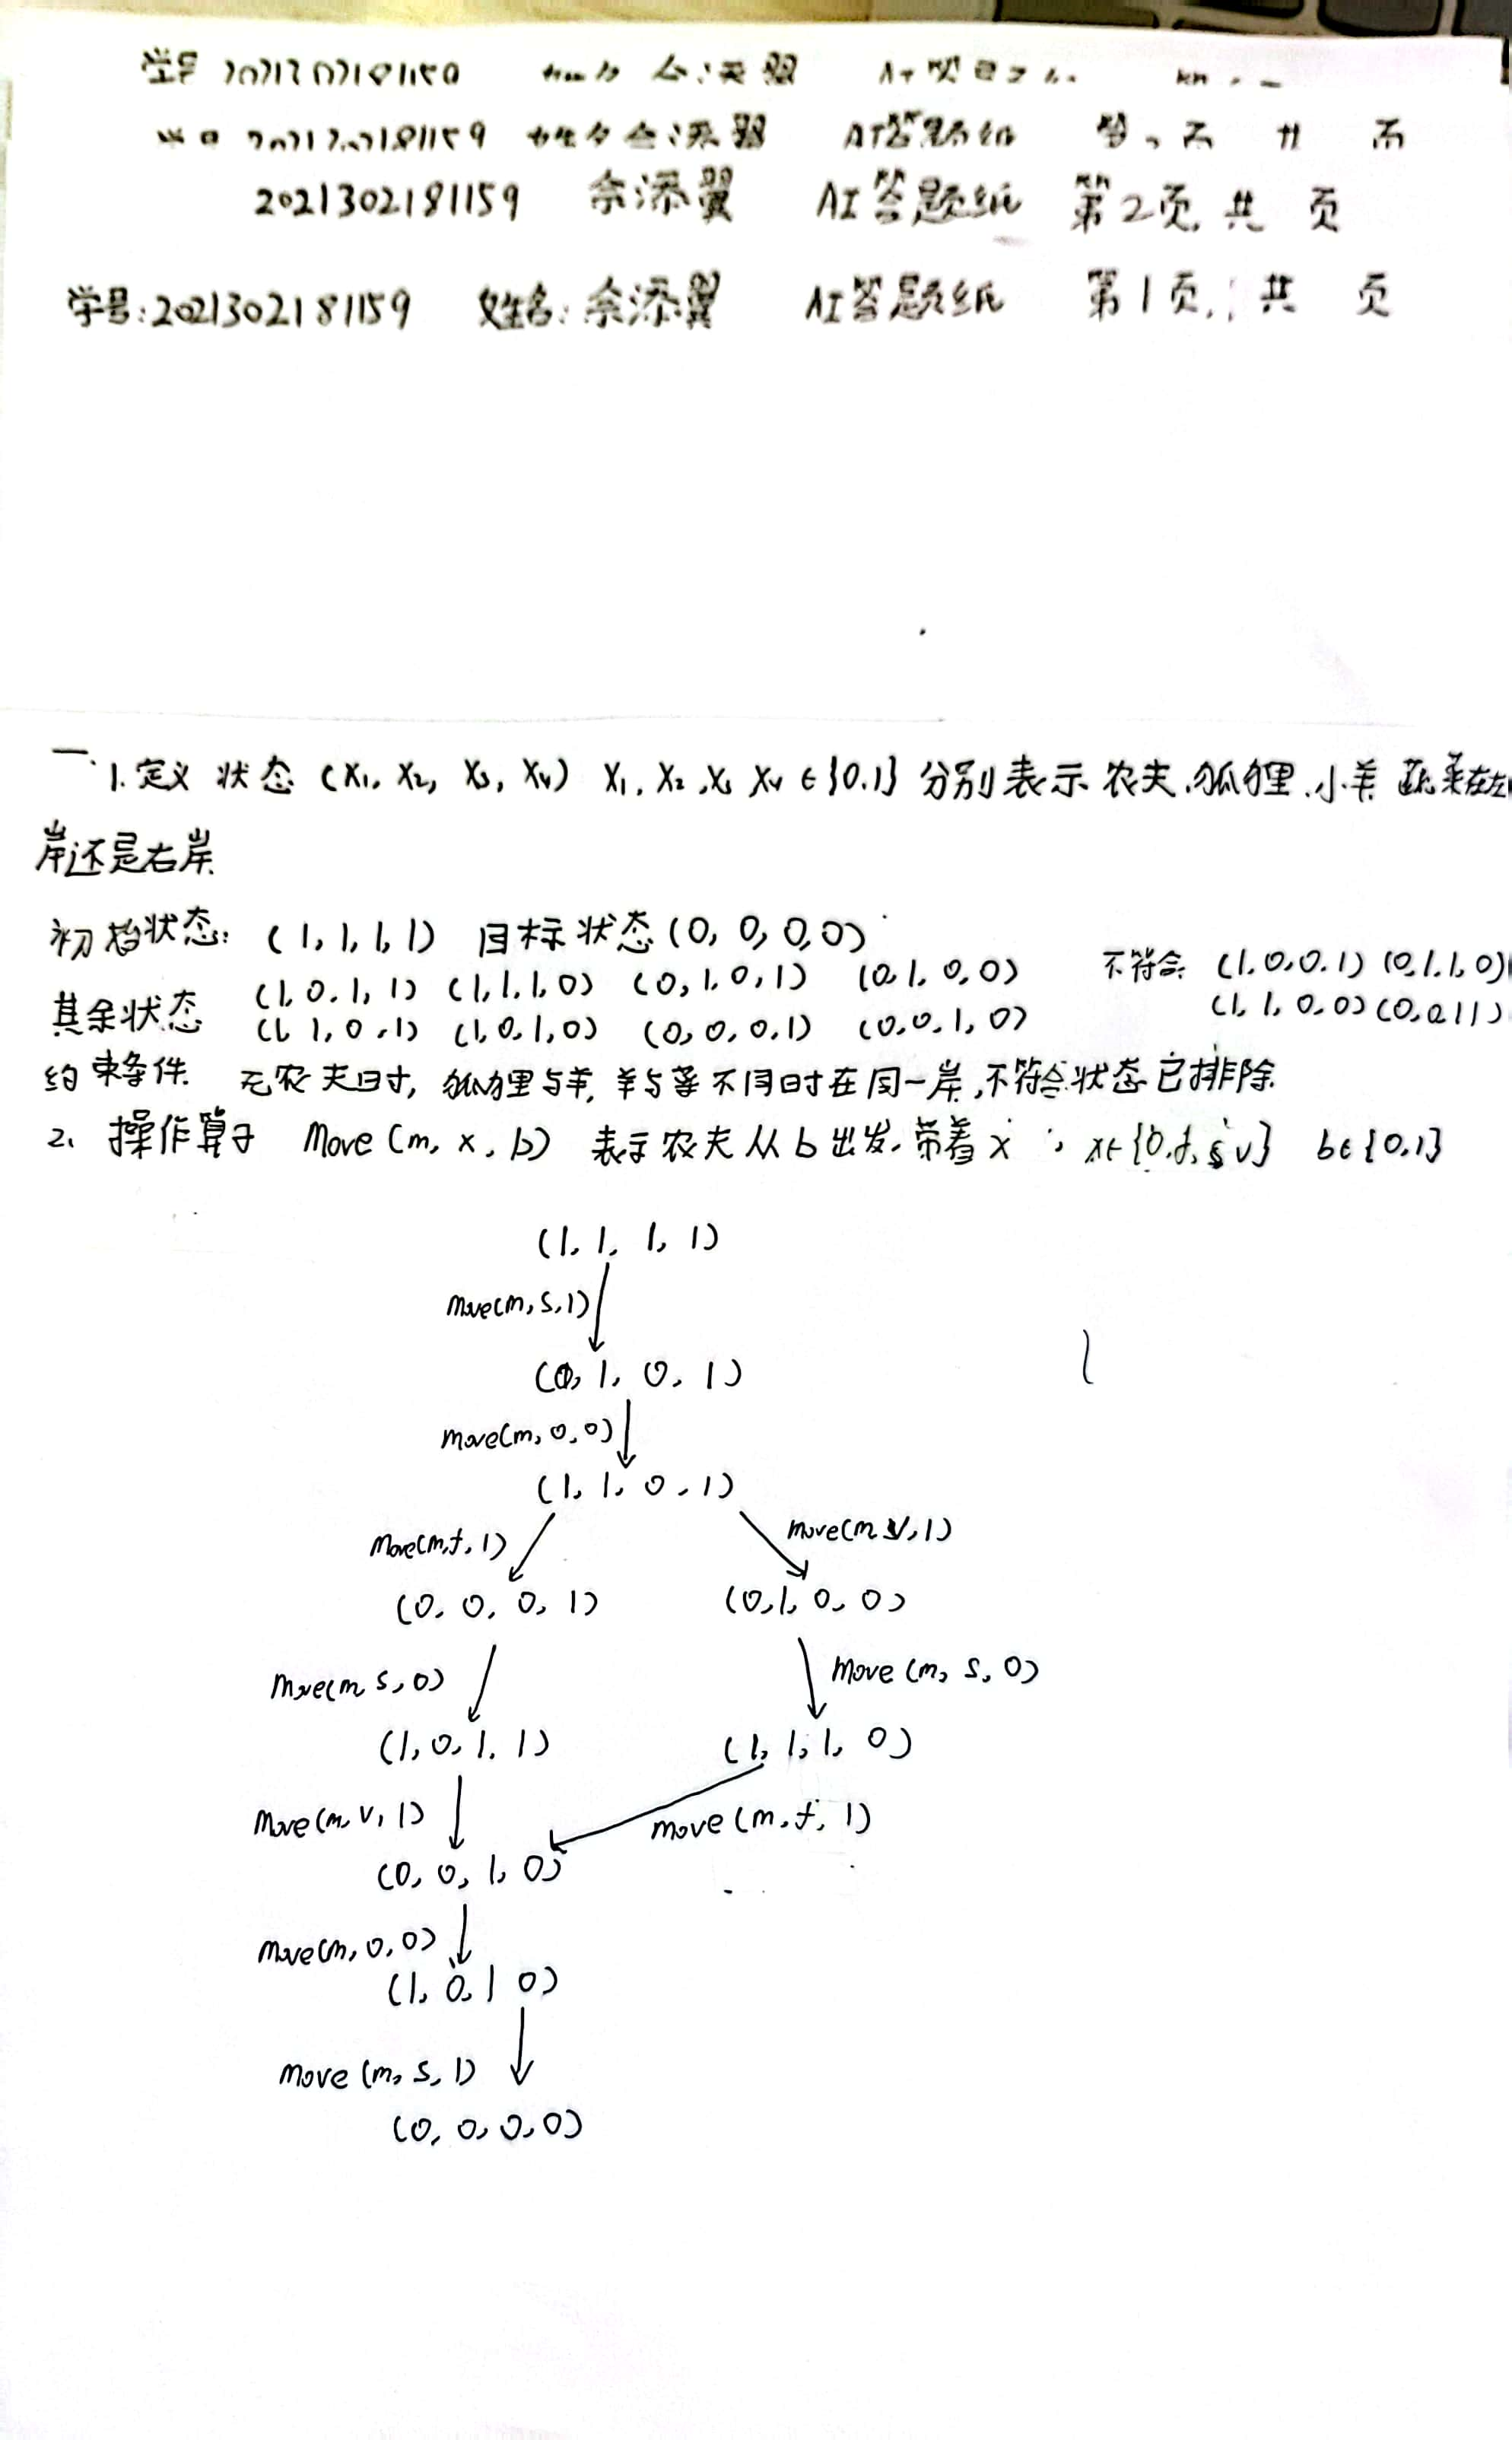 学号 姓名
2021302181159 姓名 余添翼 AI答题纸
2021302181159 余添翼 AI答题纸 第2页 共 页
学号:2021302181159 姓名:余添翼 AI答题纸 第1页, 共 页
一.1.定义 状态 (X1, X2, X3, X4) X1, X2, X3 X4 ∈{0,1} 分别表示 农夫、狐狸、小羊 蔬菜在左
岸还是右岸.
初始状态: (1,1,1,1) 目标状态(0,0,0,0)
其余状态 (1,0,1,1) (1,1,1,0) (0,1,0,1) (0,1,0,0) 不符合: (1,0,0,1) (0,1,1,0)
(1,1,0,1) (1,0,1,0) (0,0,0,1) (0,0,1,0) (1,1,0,0) (0,0,1,1)
约束条件. 无农夫时, 狐狸与羊, 羊与菜不同时在同一岸,不符合状态已排除.
2、操作算子 Move (m, x, b) 表示农夫从b出发,带着x , x∈{0,f,s,v} b∈{0,1}
(1,1,1,1)
move(m,s,1)
(0,1,0,1)
move(m,0,0)
(1,1,0,1)
Move(m,f,1) move(m v,1)
(0,0,0,1) (0,1,0,0)
Move(m s,0) move (m, s, 0)
(1,0,1,1) (1,1,1,0)
Move(m, v, 1) move (m, f, 1)
(0,0,1,0)
move(m,0,0)
(1,0,1 0)
move (m, s, 1)
(0,0,0,0)